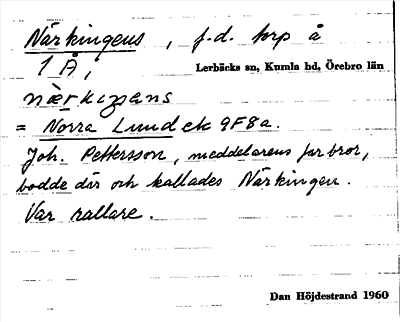 Närkingens, f.d. torp å
1 Å,
Lerbäcks sn, Kumla hd, Örebro län
nærkiŋens
= Norra Lund ek 9F8a.
Joh. Pettersson, meddelarens farbror,
bodde där och kallades Närkingen.
Var rallare.
Dan Höjdestrand 1960